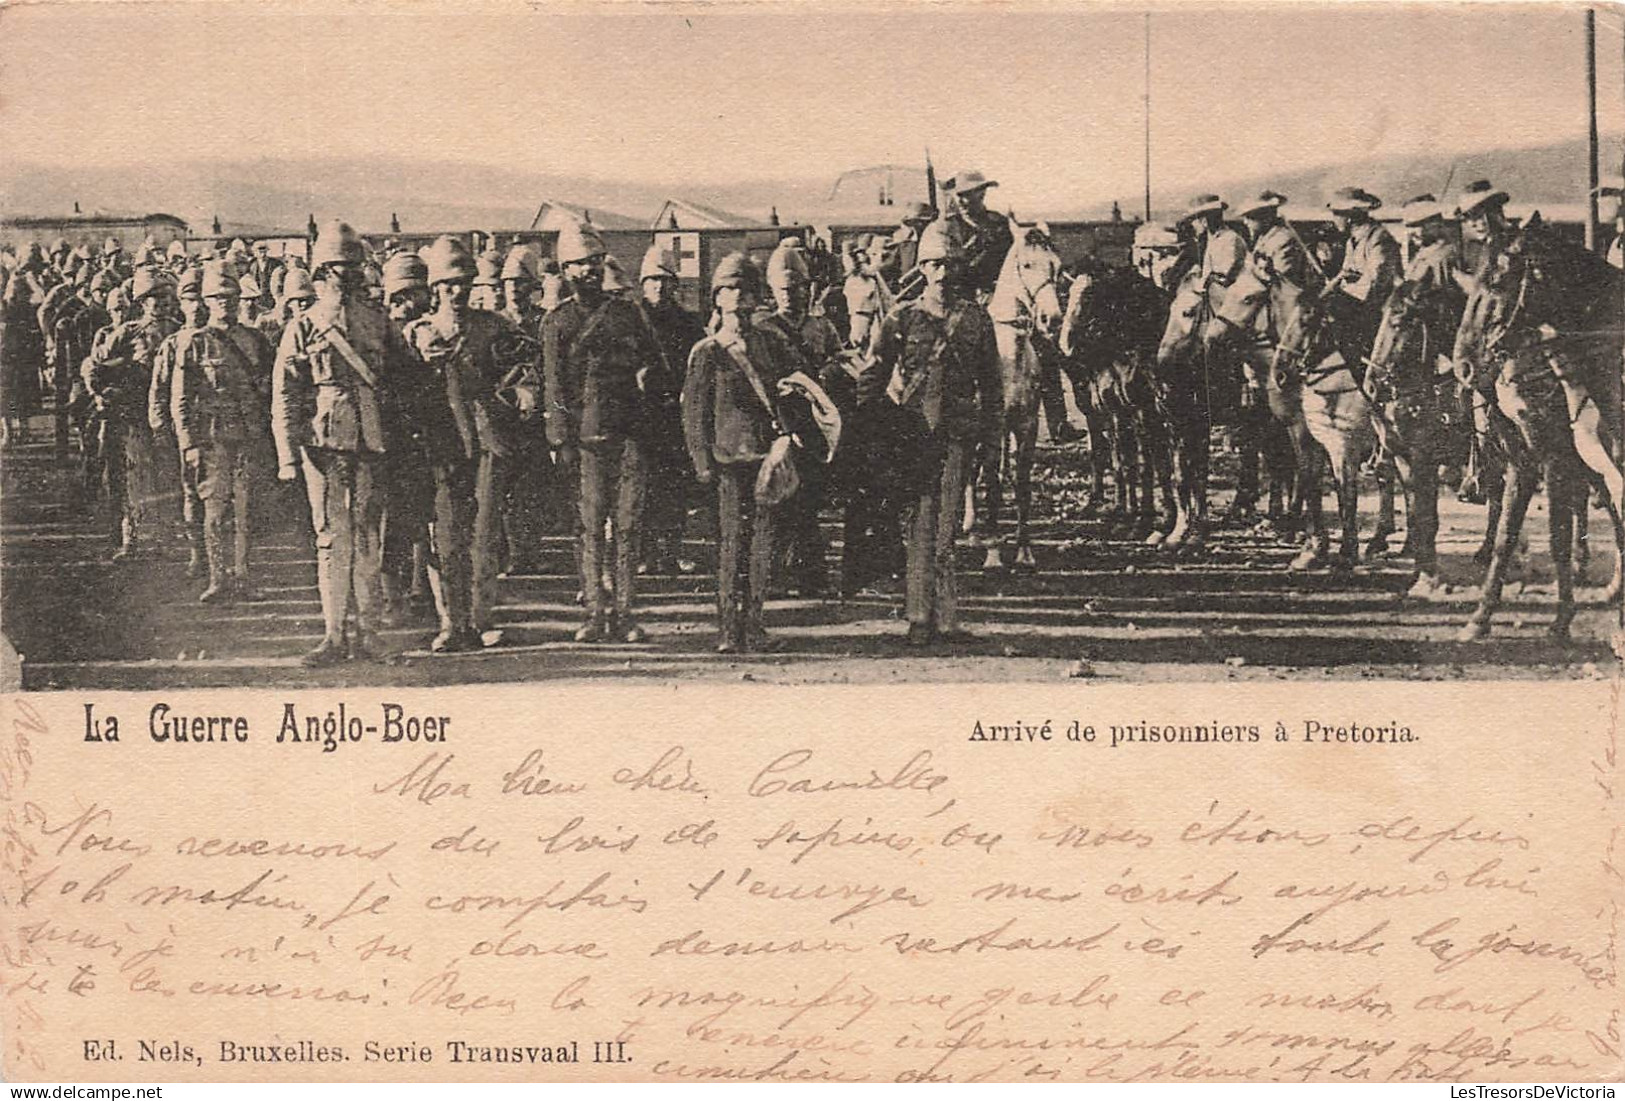 La Guerre Anglo-Boer
Arrivé de prisonniers à Pretoria.
Ma bien chère Camille,
Nous revenons du bois de sapins, ou nous étions depuis
10h matin, je comptais t'envoyer mes écrits aujourd'hui
mais je n'ai su, donc demain restant ici toute la journée
je te les enverrai. Reçu la magnifique gerbe ce matin dont je
t remercie infiniment sommes allées au
cimetière ou j'ai
Ed. Nels, Bruxelles. Serie Transvaal III.
Bon soir
LesTresorsDeVictoria